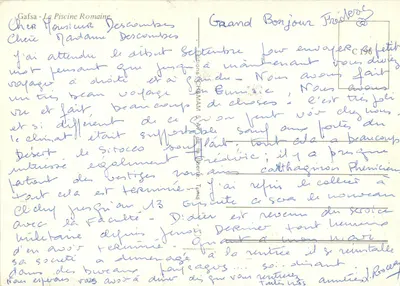 Gafsa - La Piscine Romaine
Cher Monsieur Descombes
Chère Madame Descombes
Grand Bonjour Frédéric
J'ai attendu le début Septembre pour envoyer ce petit
mot pensant que jusque maintenant vous deviez
voyager à droite et à gauche. Nous avons fait
un très beau voyage en Tunisie. Nous avons
vu et fait beaucoup de choses. C'est très joli
et si différent de ce qu'on peut voir chez nous
le climat était supportable sauf aux portes du
Désert le sirocco soufflait, tout cela a beaucoup
intéressé également Frédéric; il y a presque
partout des vestiges romains carthaginois Phéniciens
tout cela est terminé. J'ai repris le collège à
Clichy jusqu'au 13 ensuite ce sera le nouveau
avec la Faculté. Didier est revenu du service
militaire depuis jeudi Dernier tout heureux
d'en avoir terminé. Quant à mon mari
sa société a déménagé à la rentrée il se réinstalle
dans des bureaux paysagés... soi disant
Nous espérons vous avoir à dîner dès que vous rentrerez
amitiés